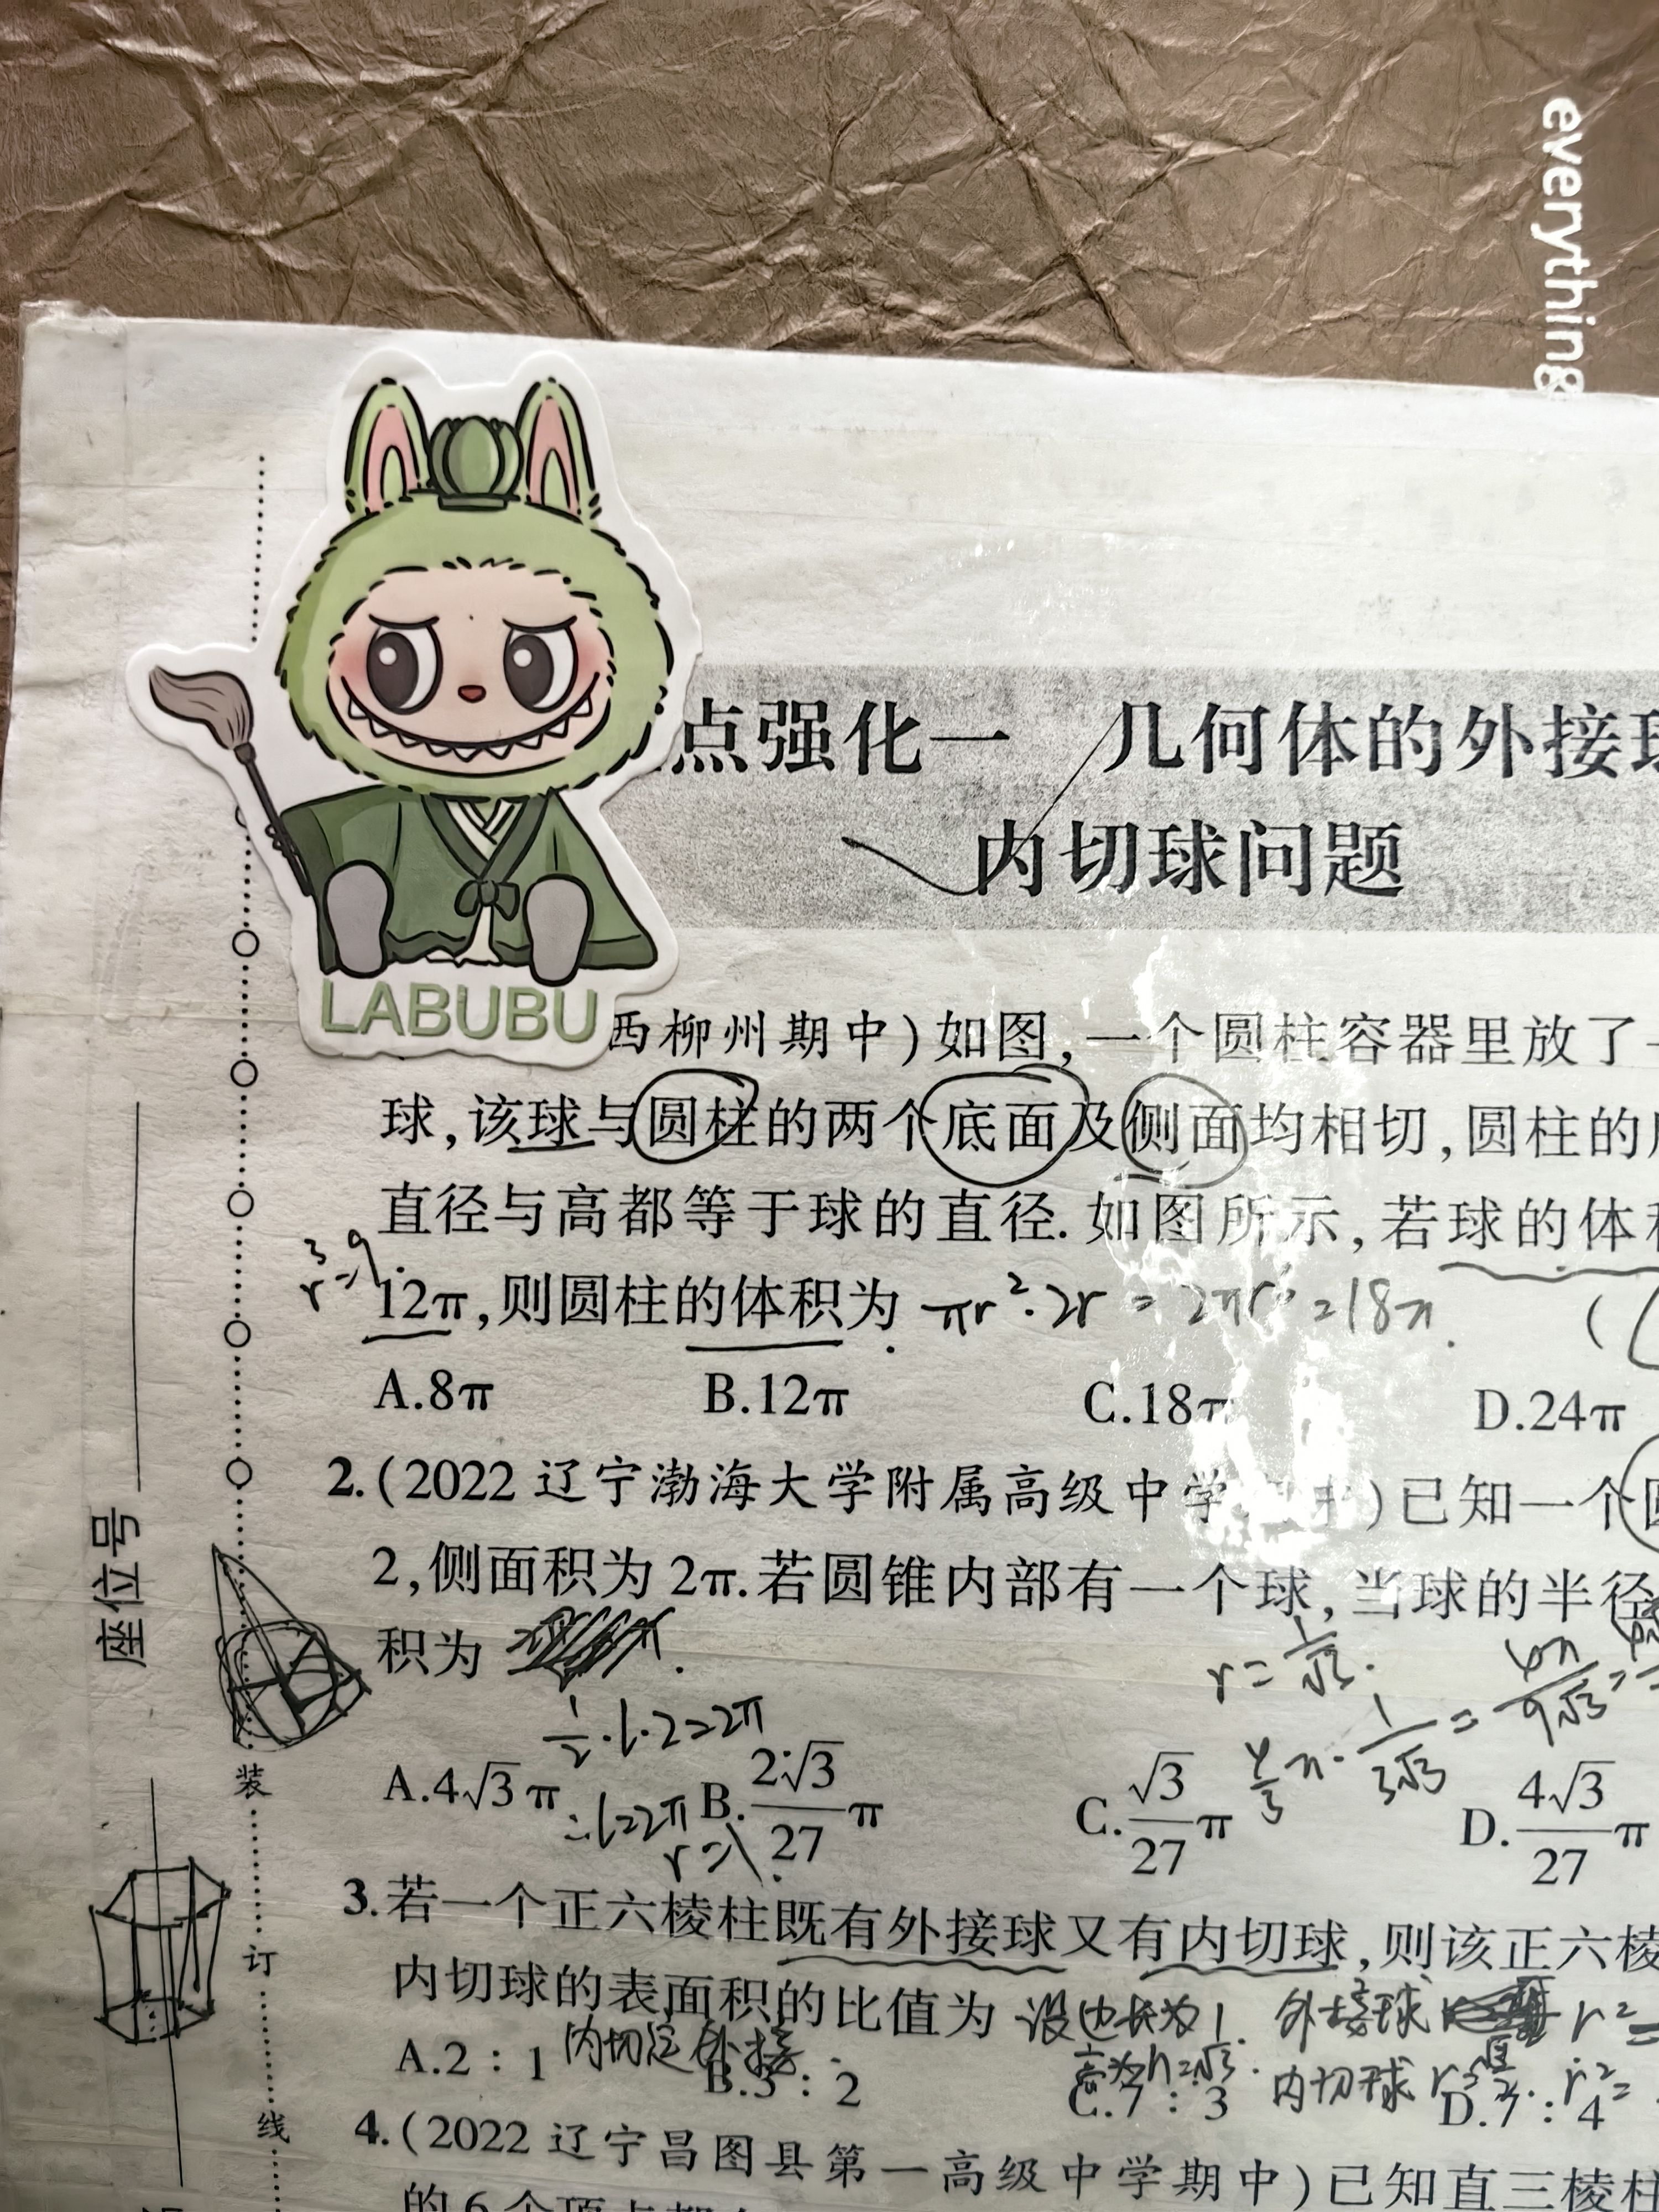 everything
点强化一 几何体的外接
内切球问题
LABUBU
西柳州期中)如图,一个圆柱容器里放了
球,该球与圆柱的两个底面及侧面均相切,圆柱的
直径与高都等于球的直径.如图所示,若球的体
r³=9.
12π,则圆柱的体积为 πr²·2r=2πr³=18π. (
A.8π B.12π C.18π D.24π
2.(2022 辽宁渤海大学附属高级中学)已知一个
2,侧面积为2π.若圆锥内部有一个球,当球的半径
积为 .
r=1/√3.
1/2·l·2=2π
4/3π·1/3√3=4π/9√3=
A.4√3π B.2√3/27π C.√3/27π D.4√3/27π
∴l=2π
r=1.
3.若一个正六棱柱既有外接球又有内切球,则该正六棱
内切球的表面积的比值为 设边长为1. 外接球 r²=
内切定外接 高为h=√3. 内切球 r=√3/2. r²=
A.2:1 B.3:2 C.7:3 D.7:4
4.(2022 辽宁昌图县第一高级中学期中)已知直三棱柱
的6个顶点都
座位号
装
订
线